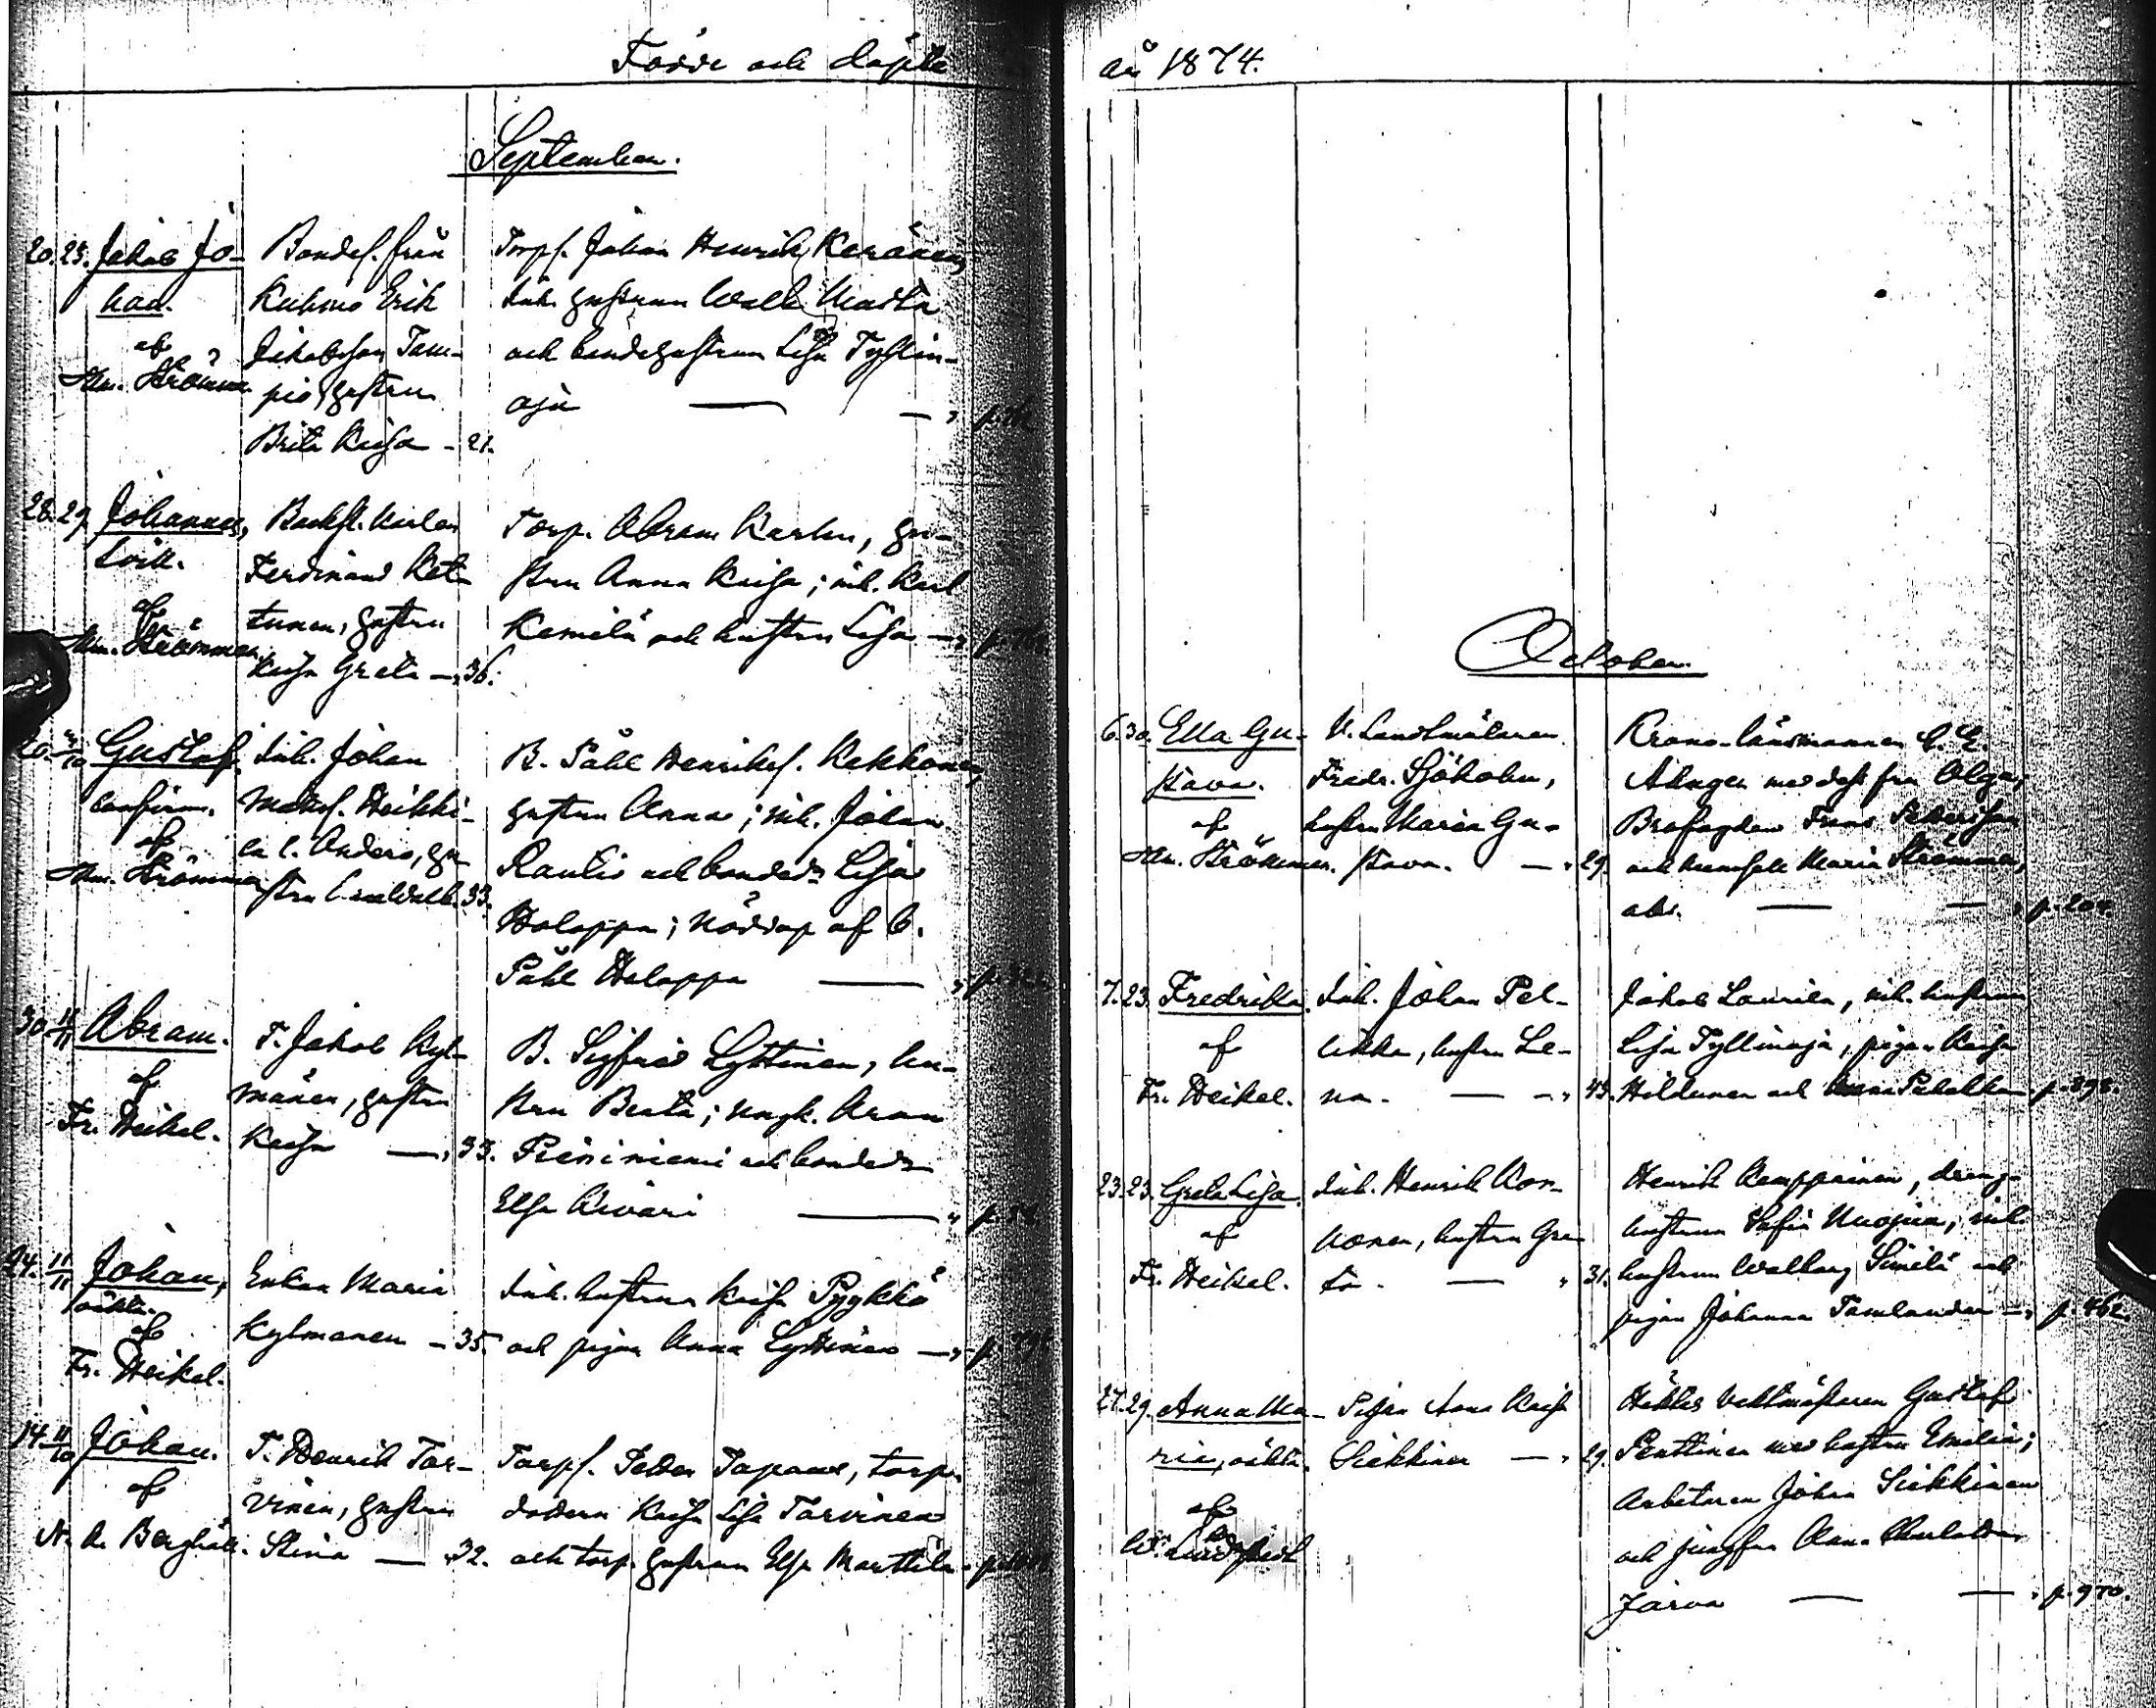 Födde och döpte
år 1874.
September.
20. 25. Jakob Jo-
han.
af
Hm. Strömmer
Bondes. från
Kuhmo Erik
Jakobsson Tam-
pio, hustru
Brita Kaisa - 21.
Torps. Johan Henrik Keränen,
inh. hustrun Walb. Maria
och bondehustrun Lisa Tyllin-
oja
28. 29. Johannes,
tvill.
af
Hm. Strömmer.
Backst. Karl
Ferdinand Ket-
tunen, hustru
Kaisa Greta - 36.
Torp. Abram Karhu, hu-
stru Anna Kaisa; inh. Karl
Kemilä och hustru Lisa
20. Gustaf,
confirm.
af
Hm. Strömmer
Inh. Johan
Matss. Heikki-
Anders, hu-
stru 33.
B. Påhl Henrikss. Kekkonen,
hustru Anna; inh. Johan
Rautio och bonded. Lisa
Holappa; nöddop af b.
Påhl Holappa
30. 11/11 Abram.
af
Fr. Heikel.
T. Jakob Kyl-
mänen, hustru
Kaisa - 33.
B. Sigfrid Lyttinen, hu-
stru Beata; yngl. Aron
Pieniniemi och bonded.
Elsa Kivari
24. 11/11 Johan,
oäkta.
af
Fr. Heikel.
Enkan Maria
Kylmanen - 35.
Inh. hustrun Kaisa Pyykkö
och pigan Anna Lyttinen
14. 11/10 Johan.
af
N. A. Berghäll.
T. Henrik Tor-
vinen, hustru
Stina - 32.
Torps. Petter Tapani, torpare
dottern Kaisa Lisa Torvinen
och torp. hustrun Elsa Marttila
October.
6. 30. Ella Gu-
stava.
af
Hm. Strömmer.
V. Landtmätaren
Fredr. Sjöholm,
hustru Maria Gu-
stava. - 29.
Krono-länsmannen C. E.
med dess fru Olga,
Brofogden Frans Pettersson
och mamsell Maria Strömmer,
p. 204.
7. 23. Fredrika.
af
Fr. Heikel.
Inh. Johan Pel-
likka, hustru Le-
na. - 43.
Jakob Laurila, inh. hustrun
Lisa Tyllinoja, pigan Kaisa
Holdunen och p. 398.
23. 23. Greta Lisa.
af
Fr. Heikel.
Inh. Henrik Kor-
honen, hustru Gre-
ta. - 31.
Henrik Kemppainen, dreng-
hustrun Sofia Muojua, inh.
hustrun Walborg Similä och
pigan Johanna Tamlander - p. 462.
27. 29. Anna Ma-
ria, oäkta.
af
W. Lindstedt
Pigan Anna Kaisa
Siekkinen - 29.
Häktes vaktmästaren Gustaf
Penttinen med hustru Emilia;
Arbetaren Johan Siekkinen
och jungfru Anna
Jarva p. 970.